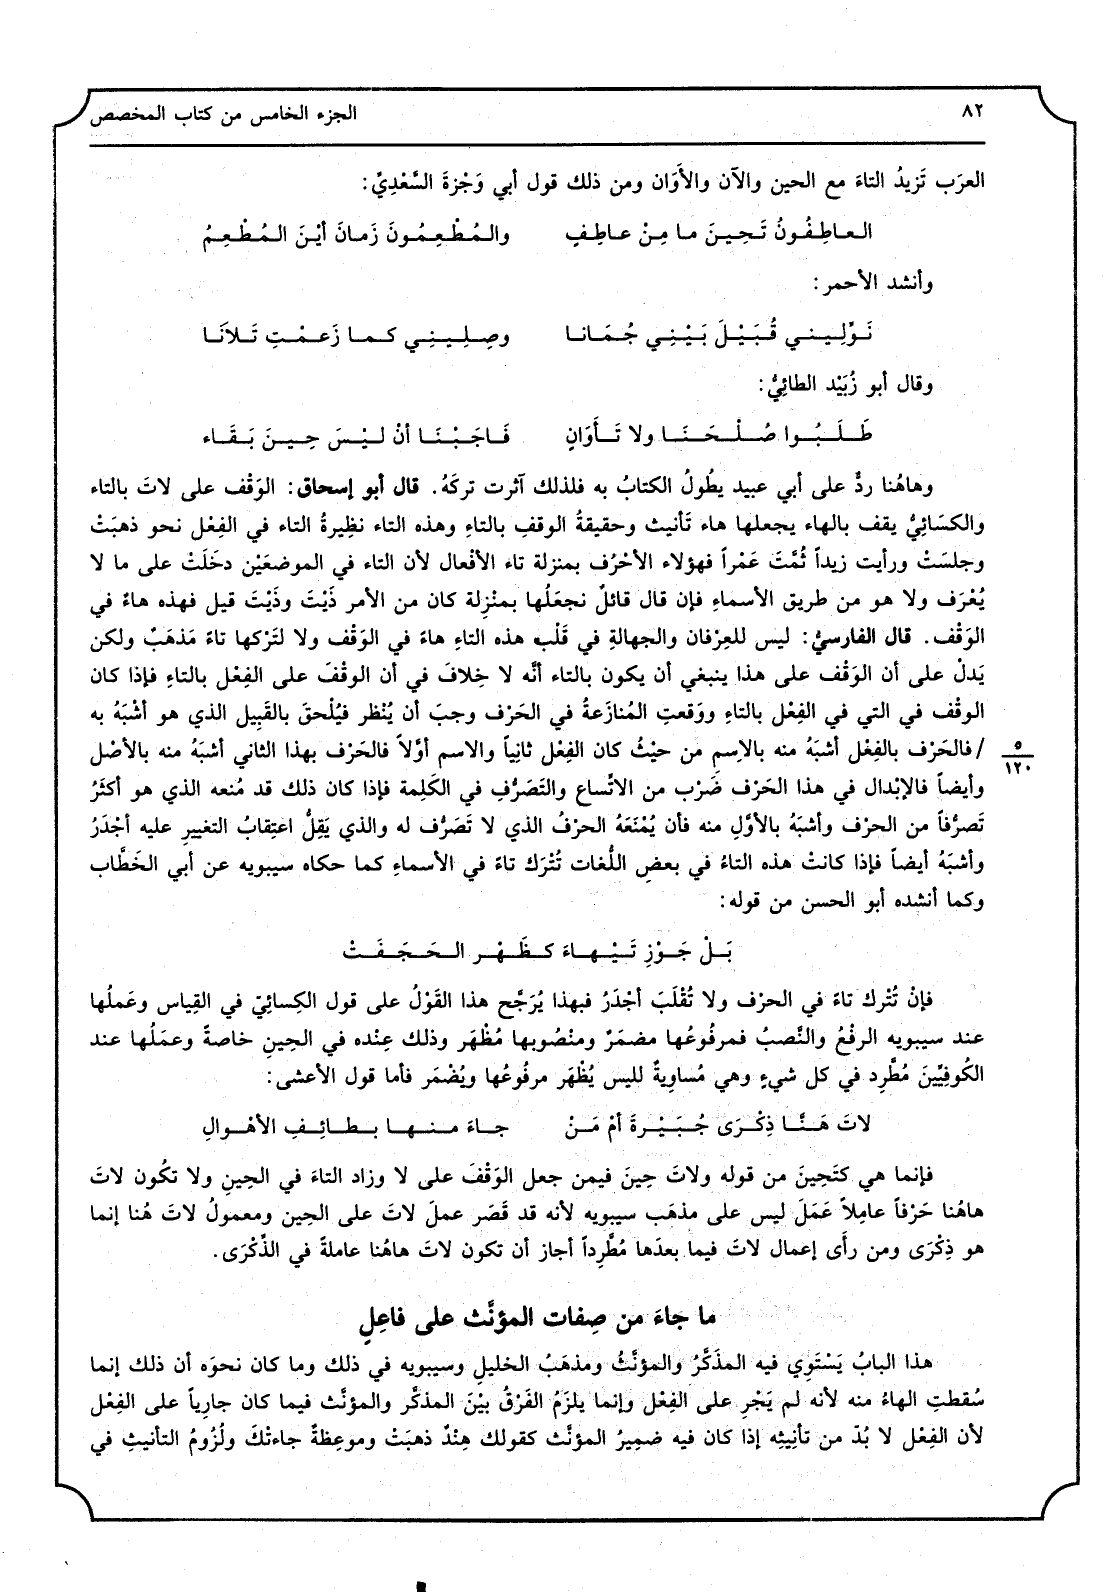 ٨٢ الجزء الخامس من كتاب المخصص
العرَب تَزيدُ التاءَ مع الحين والآن والأَوَان ومن ذلك قول أبي وَجْزةَ السَّعْدِيِّ:
العاطِفُونُ تَحِينَ ما مِنْ عاطِفِ والمُطْعِمُونَ زَمانَ أيْنَ المُطْعِمُ
وأنشد الأحمر:
نَوِّلِيني قُبَيْلَ بَيْنِي جُمَانا وصِلِينِي كما زَعمْتِ تَلاَنَا
وقال أبو زُبَيْد الطائِيُّ:
طَلَبُوا صُلْحَنَا ولا تَأَوَانٍ فَاجَبْنَا أنْ ليْسَ حِينَ بَقَاء
وهاهُنا ردٌّ على أبي عبيد يطُولُ الكتابُ به فلذلك آثرت تركَهُ. قال أبو إسحاق: الوَقْف على لاتَ بالتاء
والكسَائِيُّ يقف بالهاء يجعلها هاء تَأنيث وحقيقةُ الوقفِ بالتاءِ وهذه التاء نظِيرةُ التاء في الفِعْل نحو ذهبَتْ
وجلسَتْ ورأيت زيداً ثُمَّتَ عَمْراً فهؤلاء الأحْرُف بمنزلة تاء الأفْعال لأن التاء في الموضعَيْن دخَلَتْ على ما لا
يُعْرَف ولا هو من طريق الأسماءِ فإن قال قائلٌ نجعَلُها بمنْزِلة كان من الأمر ذَيْتَ وذَيْتَ قيل فهذه هاءٌ في
الوَقْف. قال الفارسيُّ: ليس للعِرْفان والجهالةِ في قَلْب هذه التاءِ هاءً في الوَقْف ولا لتَرْكها تاءً مَذهَبٌ ولكن
يَدلْ على أن الوَقْف على هذا ينبغي أن يكون بالتاء أنَّه لا خِلافَ في أن الوقْفَ على الفِعْل بالتاءِ فإذا كان
الوقْف في التي في الفِعْل بالتاءِ ووَقعتِ المُنازَعةُ في الحَرْف وجبَ أن يُنْظر فيُلْحقَ بالقَبِيل الذي هو أشْبَهُ به
/ فالحَرْف بالفِعْل أشبَهُ منه بالاِسمِ من حيْثُ كان الفِعْل ثانياً والاسم أوَّلاً فالحَرْف بهذا الثاني أشبَهُ منه بالأصْل
٥
١٢٠
وأيضاً فالإبْدال في هذا الحَرْف ضَرْب من الاتِّساع والتَصَرُّفِ في الكَلِمة فإذا كان ذلك قد مُنعه الذي هو أكثَرُ
تَصرُّفاً من الحرْف وأشبَهُ بالأوَّلِ منه فأن يُمْنَعَهُ الحرْفُ الذي لا تَصَرُّف له والذي يَقِلُّ اعتِقابُ التغييرِ عليه أجْدَرُ
وأشبَهُ أيضاً فإذا كانتْ هذه التاءُ في بعضِ اللُّغات تُتْرَك تاءً في الأسماءِ كما حكاه سيبويه عن أبي الخَطَّاب
وكما أنشده أبو الحسن من قوله:
بَلْ جَوْزِ تَيْهاءَ كظَهْرِ الحَجَفَتْ
فإنْ تُتْرك تاءً في الحرْف ولا تُقْلَبَ أجْدَرُ فبهذا يُرَجَّح هذا القَوْلُ على قول الكِسائِيّ في القِياس وعَملُها
عند سيبويه الرفْعُ والنَّصبُ فمرفُوعُها مضمَرٌ ومنْصُوبها مُظْهَر وذلك عِنْده في الحِينِ خاصةً وعمَلُها عند
الكُوفِيِّينَ مُطَّرِد في كل شيءٍ وهي مُساوِيةٌ لليس يُظْهَر مرفُوعُها ويُضْمَر فأما قول الأعشى:
لاتَ هَنَّا ذِكْرَى جُبَيْرةَ أمْ مَنْ جاءَ منها بطائِفِ الأهْوالِ
فإنما هي كتَحِينَ من قوله ولاتَ حِينَ فيمن جعل الوَقْفَ على لا وزاد التاءَ في الحِينِ ولا تكُون لاتَ
هاهُنا حَرْفاً عامِلاً عَمَلَ ليس على مذهَب سيبويه لأنه قد قَصَر عملَ لاتَ على الحِين ومعمولُ لاتَ هُنا إنما
هو ذِكْرَى ومن رأَى إعمال لاتَ فيما بعدَها مُطَّرِداً أجاز أن تكون لاتَ هاهُنا عاملةً في الذِّكْرَى.
ما جاءَ من صِفات المؤنَّث على فاعِلٍ
هذا البابُ يَسْتَوِي فيه المذَكَّرُ والمؤنَّثُ ومذهَبُ الخليلِ وسيبويه في ذلك وما كان نحوَه أن ذلك إنما
سُقطتِ الهاءُ منه لأنه لم يَجْرِ على الفِعْل وإنما يلزَمُ الفَرْقُ بيْنَ المذكَّر والمؤنَّث فيما كان جارِياً على الفِعْل
لأن الفِعْل لا بُدّ من تأنِيثِه إذا كان فيه ضميرُ المؤنَّث كقولك هِنْدٌ ذهبَتْ وموعِظةٌ جاءتْكَ ولُزُومُ التأنيثِ في